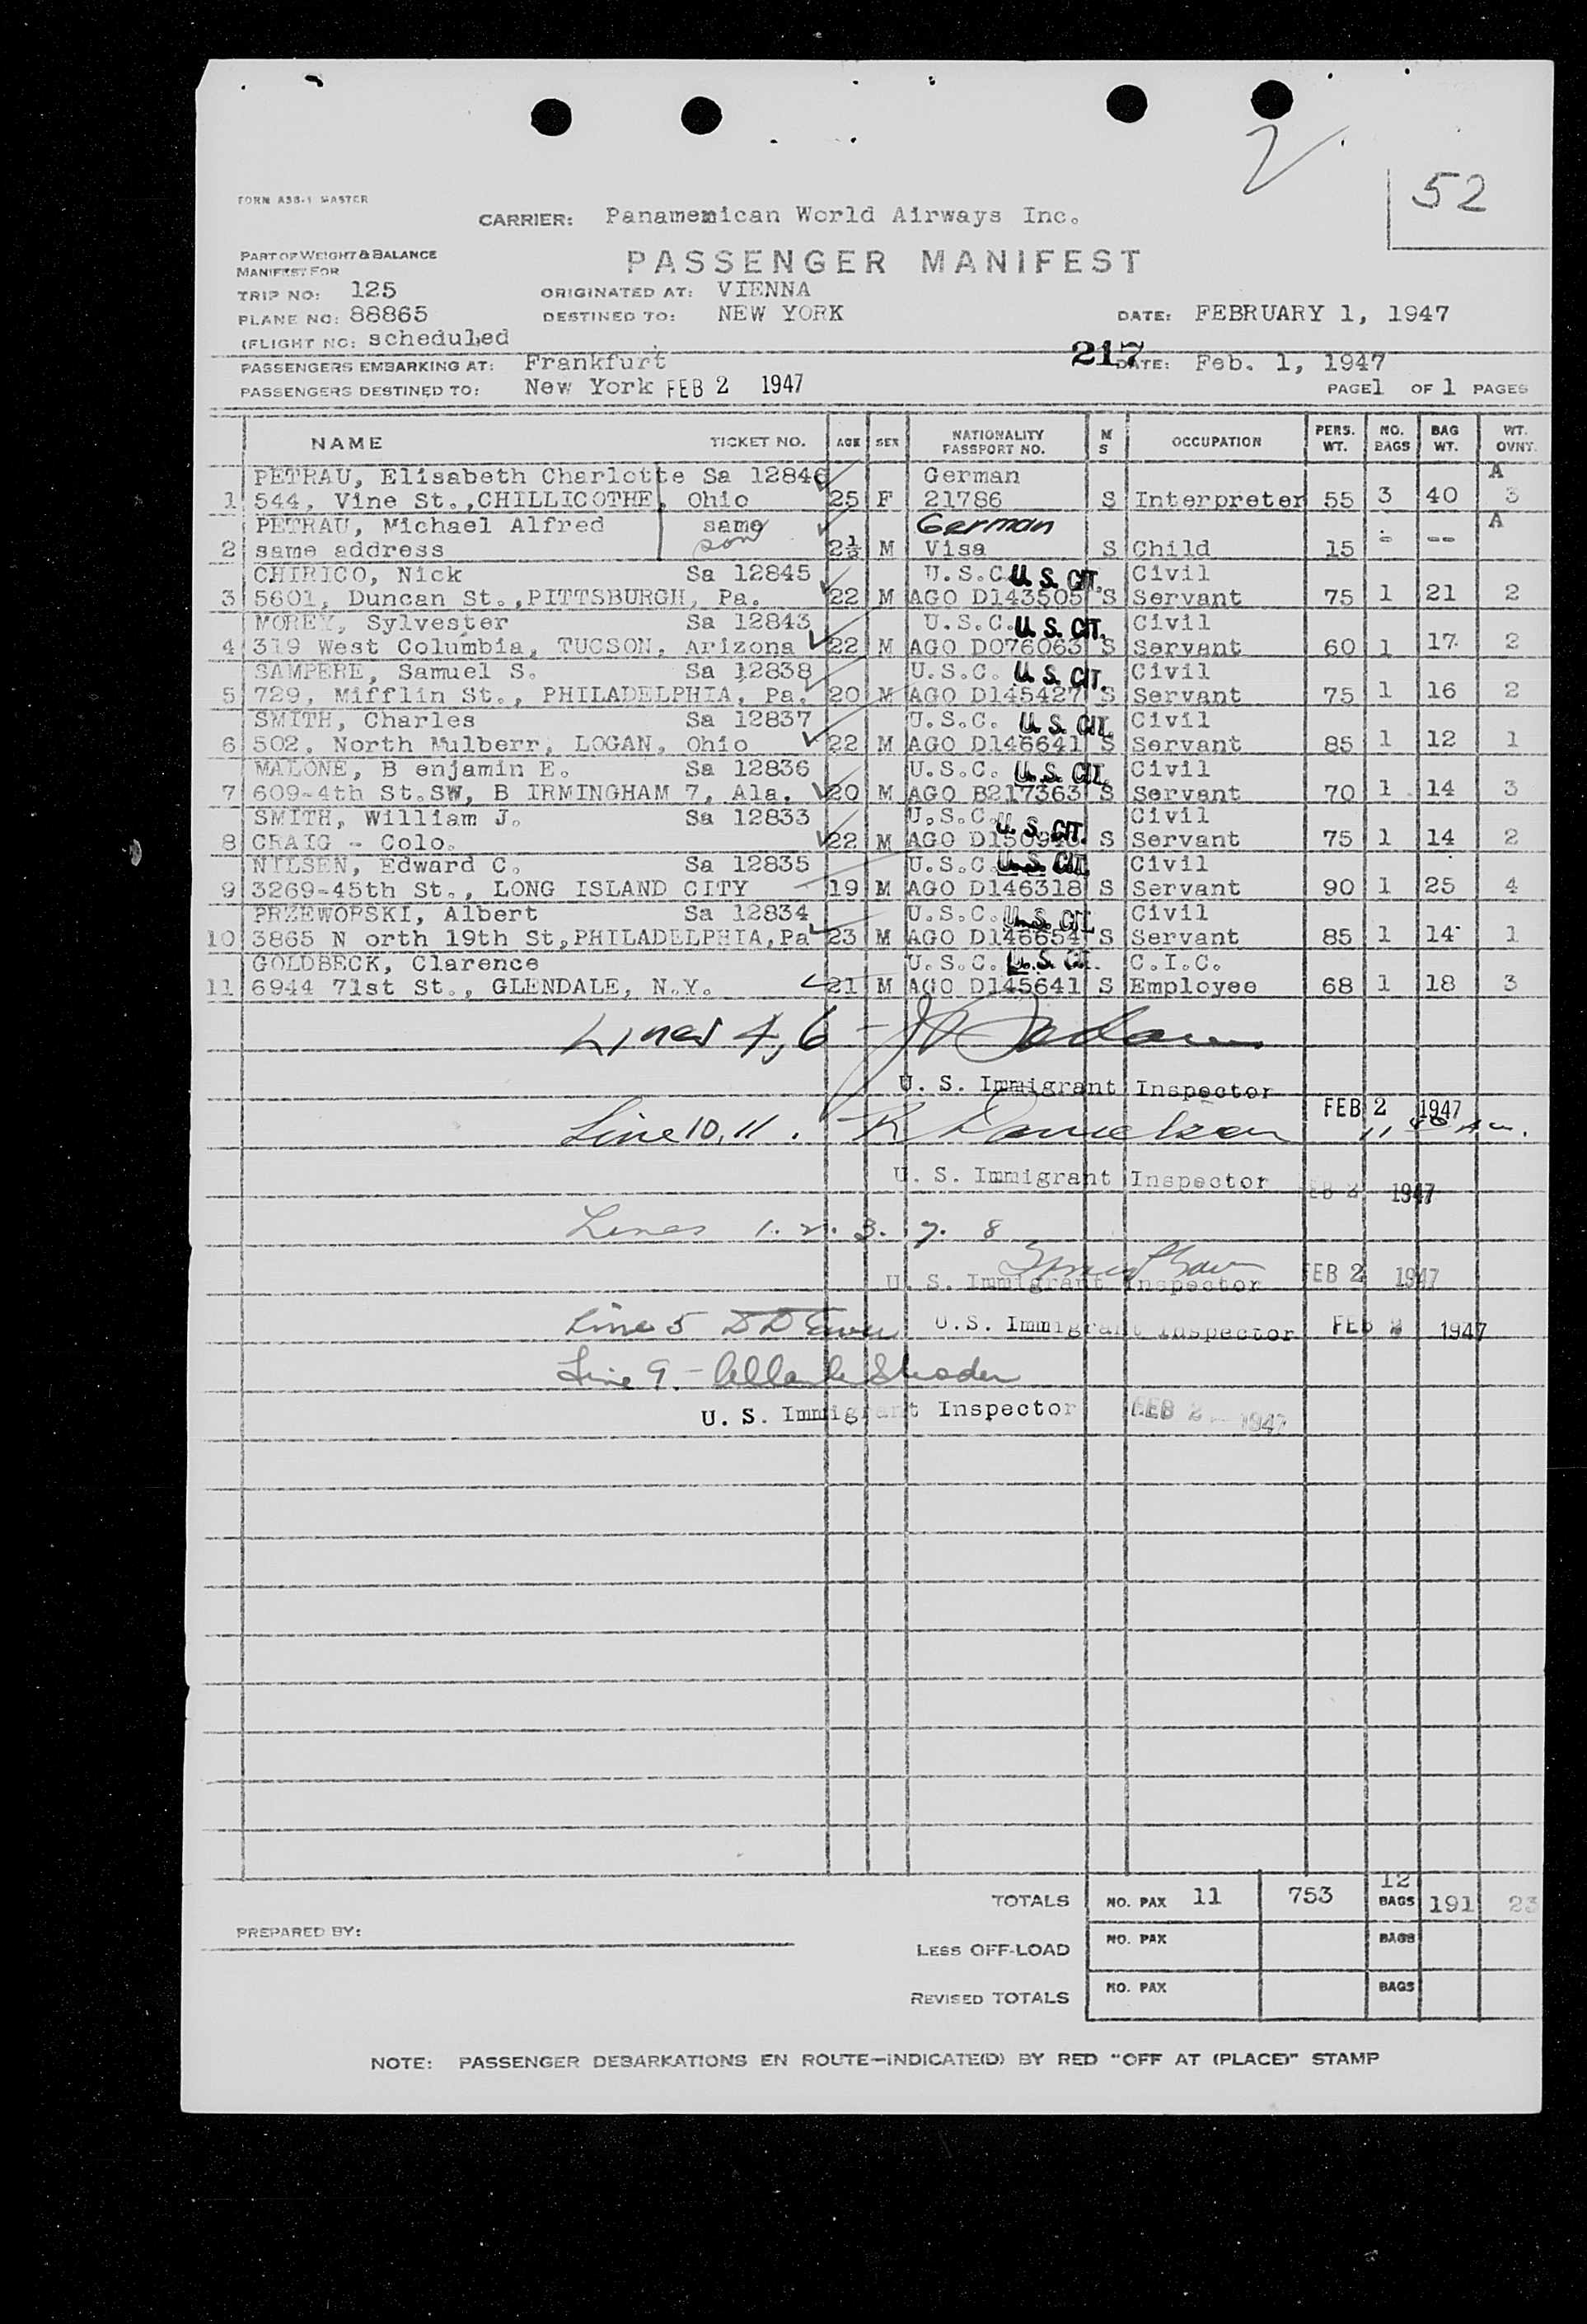 52
FORM ASB-1 MASTER
CARRIER: Panamemican World Airways Inc.
PART OF WEIGHT & BALANCE
MANIFEST FOR
PASSENGER MANIFEST
TRIP NO: 125 ORIGINATED AT: VIENNA
PLANE NO: 88865 DESTINED TO: NEW YORK DATE: FEBRUARY 1, 1947
(FLIGHT NO: scheduled
217
PASSENGERS EMBARKING AT: Frankfurt DATE: Feb. 1, 1947
PASSENGERS DESTINED TO: New York FEB 2 1947 PAGE 1 OF 1 PAGES
NAME TICKET NO. AGE SEX NATIONALITY PASSPORT NO. M S OCCUPATION PERS. WT. NO. BAGS BAG WT. WT. OVNT.
PETRAU, Elisabeth Charlotte Sa 12846 German A
1 544, Vine St.,CHILLICOTHE, Ohio 25 F 21786 S Interpreter 55 3 40 3
PETRAU, Michael Alfred same son German A
2 same address 2½ M Visa S Child 15 - --
CHIRICO, Nick Sa 12845 U.S.C. U.S. CIT. Civil
3 5601, Duncan St.,PITTSBURGH, Pa. 22 M AGO D143505 S Servant 75 1 21 2
MOREY, Sylvester Sa 12843 U.S.C. U.S. CIT. Civil
4 319 West Columbia, TUCSON, Arizona 22 M AGO D076063 S Servant 60 1 17 2
SAMPERE, Samuel S. Sa 12838 U.S.C. U.S. CIT. Civil
5 729, Mifflin St., PHILADELPHIA, Pa. 20 M AGO D145427 S Servant 75 1 16 2
SMITH, Charles Sa 12837 U.S.C. U.S. CIT. Civil
6 502, North Mulberr, LOGAN, Ohio 22 M AGO D146641 S Servant 85 1 12 1
MALONE, B enjamin E. Sa 12836 U.S.C. U.S. CIT. Civil
7 609-4th St.SW, B IRMINGHAM 7, Ala. 20 M AGO B217363 S Servant 70 1 14 3
SMITH, William J. Sa 12833 U.S.C. U.S. CIT. Civil
8 CRAIG - Colo. 22 M AGO S Servant 75 1 14 2
NILSEN, Edward C. Sa 12835 U.S.C. U.S. CIT. Civil
9 3269-45th St., LONG ISLAND CITY 19 M AGO D146318 S Servant 90 1 25 4
PRZEWORSKI, Albert Sa 12834 U.S.C. U.S. CIT. Civil
10 3865 N orth 19th St,PHILADELPHIA,Pa 23 M AGO D146654 S Servant 85 1 14 1
GOLDBECK, Clarence U.S.C. U.S. CIT. C.I.C.
11 6944 71st St., GLENDALE, N.Y. 21 M AGO D145641 S Employee 68 1 18 3
Lines 4, 6 -
U. S. Immigrant Inspector
FEB 2 1947
Line 10, 11. R Danielson 11 A.m.
U. S. Immigrant Inspector FEB 2 1947
Lines 1. 2. 3. 7. 8
U. S. Immigrant Inspector FEB 2 1947
Line 5 U.S. Immigrant Inspector FEB 2 1947
Line 9 -
U. S. Immigrant Inspector FEB 2 1947
TOTALS NO. PAX 11 753 12 BAGS 191 23
PREPARED BY:
LESS OFF-LOAD NO. PAX BAGS
REVISED TOTALS NO. PAX BAGS
NOTE: PASSENGER DEBARKATIONS EN ROUTE—INDICATE(D) BY RED "OFF AT (PLACE)" STAMP